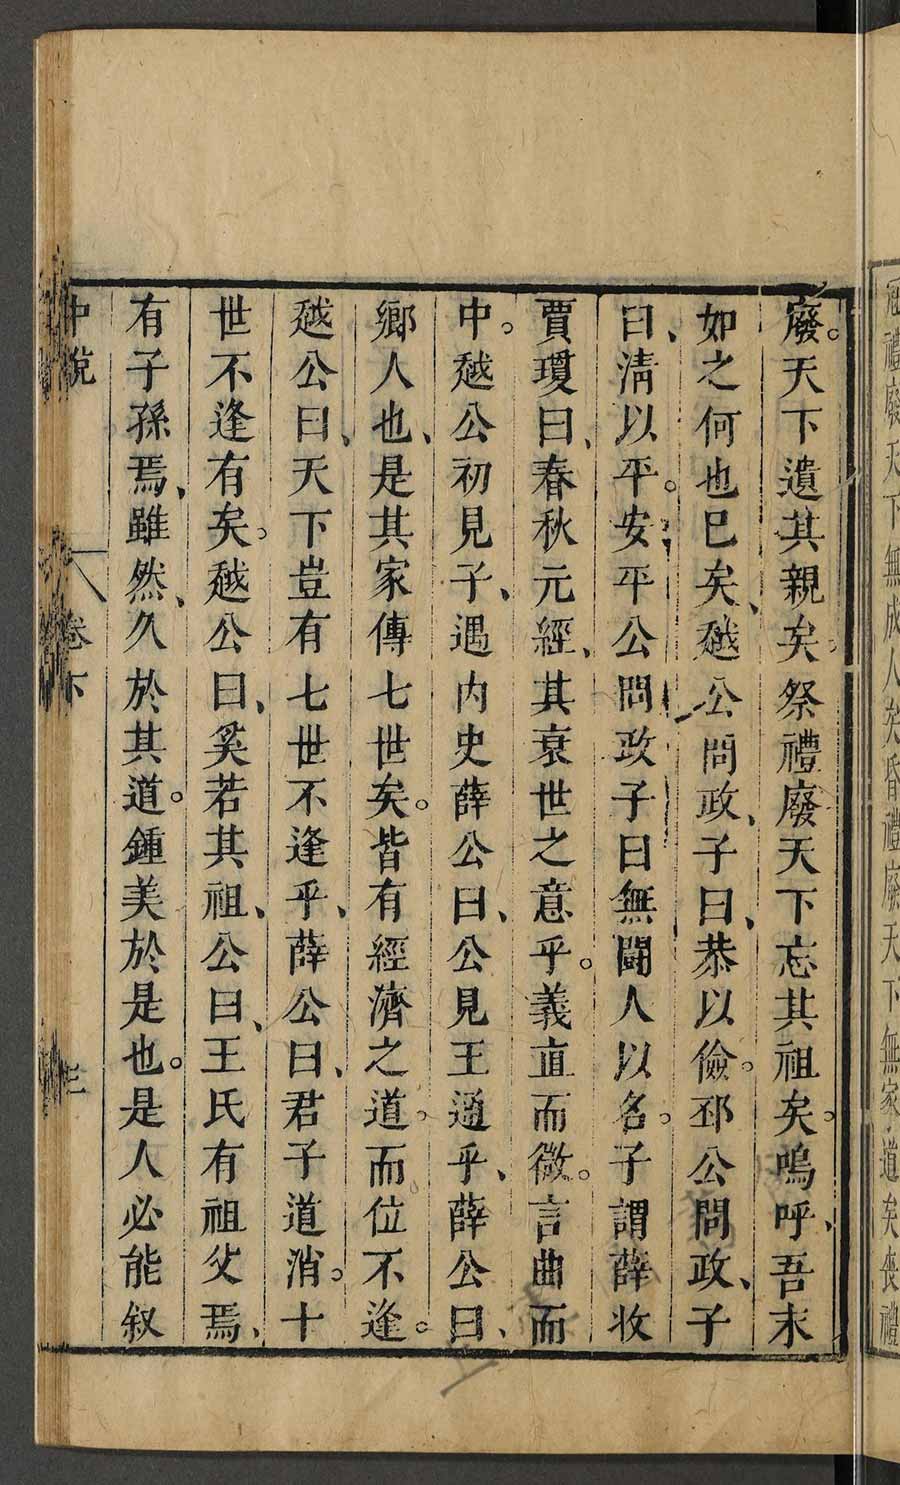 冠禮廢天下無成人矣昏禮廢天下無家道矣喪禮
廢。天下遺其親矣。祭禮廢天下忘其祖矣。嗚呼、吾末
如之何也已矣、越公問政、子曰、恭以儉。邳公問政、子
曰、清以平。安平公問政子曰無鬪人以名。子謂薛收
賈瓊曰、春秋元經、其衰世之意乎。義直而微。言曲而
中。越公初見子、遇內史薛公曰、公見王通乎、薛公曰、
鄉人也、是其家傳七世矣。皆有經濟之道。而位不逢。
越公曰、天下豈有七世不逢乎、薛公曰、君子道消。十
世不逢有矣。越公曰、奚若其祖、公曰、王氏有祖父焉、
有子孫焉、雖然、久於其道。鍾美於是也。是人必能叙
中說
卷下
三